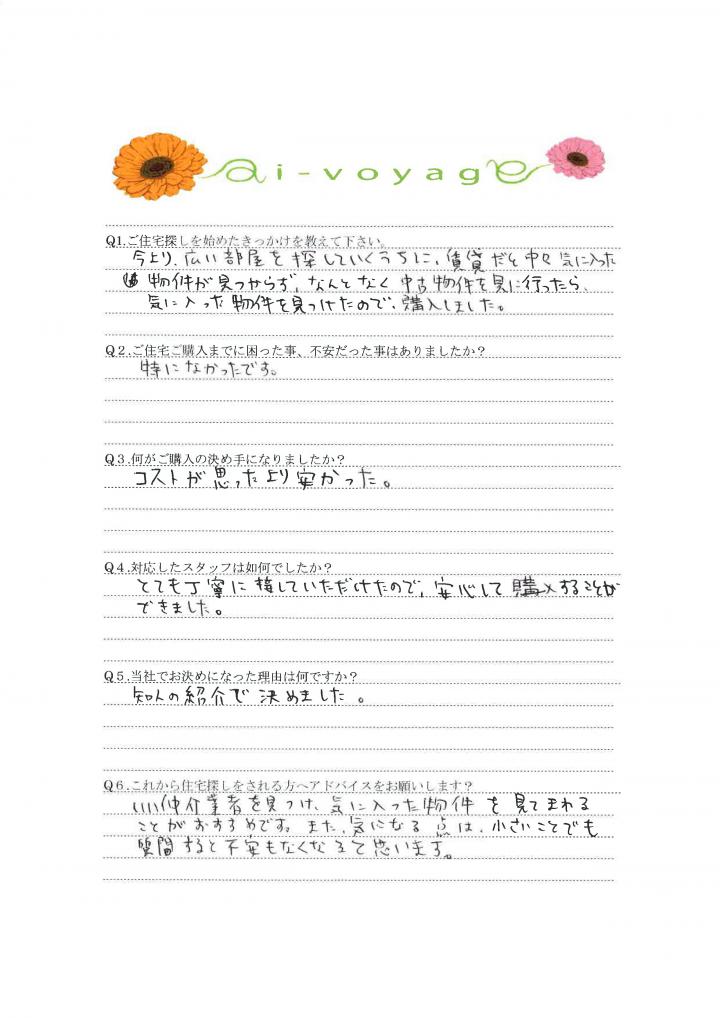 ai-voyage
Q1.ご住宅探しを始めたきっかけを教えて下さい。
今より、広い部屋を探していくうちに、賃貸だと中々気に入った
物件が見つからず、なんとなく中古物件を見に行ったら、
気に入った物件を見つけたので、購入しました。
Q2.ご住宅ご購入までに困った事、不安だった事はありましたか？
特になかったです。
Q3.何がご購入の決め手になりましたか？
コストが思ったより安かった。
Q4.対応したスタッフは如何でしたか？
とても丁寧に接していただけたので、安心して購入することが
できました。
Q5.当社でお決めになった理由は何ですか？
知人の紹介で決めました。
Q6.これから住宅探しをされる方へアドバイスをお願いします？
いい仲介業者を見つけ、気に入った物件を見てまわる
ことがおすすめです。また、気になる点は、小さいことでも
質問すると不安もなくなるて思います。